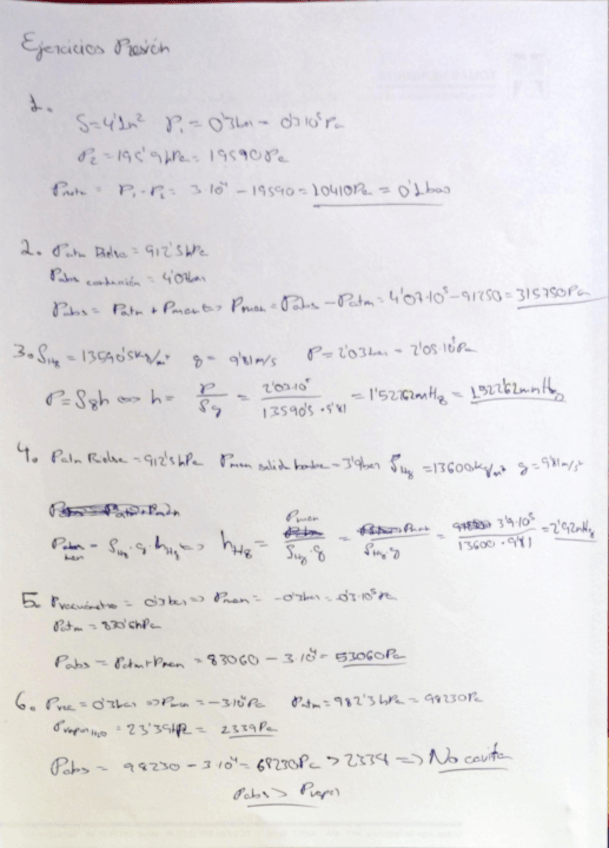 Ejercicios Presión
1.
S=4'1m² P₁ = 0'3bar = 0'3·10⁵Pa
P₂ = 195'9hPa = 19590Pa
P = P₁ - P₂ = 3·10⁴ - 19590 = 10410Pa = 0'1bar
2. Patm Bielsa = 912'5hPa
Pabs = 4'07bar
Pabs = Patm + Pman <=> Pman = Pabs - Patm = 4'07·10⁵ - 91250 = 315750Pa
3. ρHg = 13590'5kg/m³ g = 9'81m/s P = 2'03bar = 2'03·10⁵Pa
P = ρgh <=> h = P/ρg = 2'03·10⁵/13590'5·9'81 = 1'52262mHg = 1522'62mmHg
4. Patm Bielsa = 912'5hPa Pman salida bomba = 3'9bar ρHg = 13600kg/m³ g = 9'81m/s²
Pman = ρHg·g·hHg <=> hHg = Pman/ρHg·g = = 3'9·10⁵/13600·9'81 = 2'92mHg
5. Pvacuómetro = 0'3bar => Pman = -0'3bar = -0'3·10⁵Pa
Patm = 830'6hPa
Pabs = Patm + Pman = 83060 - 3·10⁴ = 53060Pa
6. Pvac = 0'3bar => Pman = -3·10⁴Pa Patm = 982'3hPa = 98230Pa
Pvapor H₂O = 23'39hPa = 2339Pa
Pabs = 98230 - 3·10⁴ = 68230Pa > 2339 => No cavita
Pabs > Pvapor